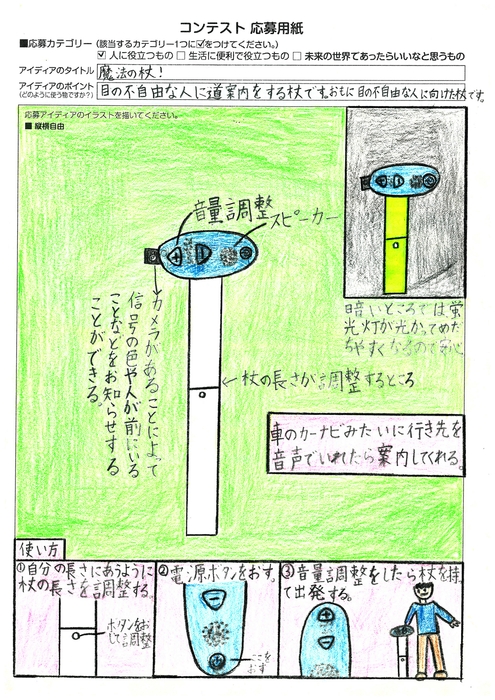 コンテスト 応募用紙
■応募カテゴリー（該当するカテゴリー1つに☑をつけてください。）
☑ 人に役立つもの □ 生活に便利で役立つもの □ 未来の世界であったらいいなと思うもの
アイディアのタイトル 魔法の杖!
アイディアのポイント
（どのように使う物ですか？） 目の不自由な人に道案内をする杖です。おもに目の不自由な人に向けた杖です。
応募アイディアのイラストを描いてください。
■ 縦横自由
音量調整
スピーカー
カメラがあることによって
信号の色や人が前にいる
ことなどをお知らせする
ことができる。
暗いところでは蛍
光灯が光かってめだ
ちやすくなるので安心
杖の長さが調整するところ
車のカーナビみたいに行き先を
音声でいれたら案内してくれる。
使い方
①自分の長さにあうように
杖の長さを調整する。
ボタンをお
して調整
②電源ボタンをおす。
ここを
おす
③音量調整をしたら杖を持っ
て出発する。